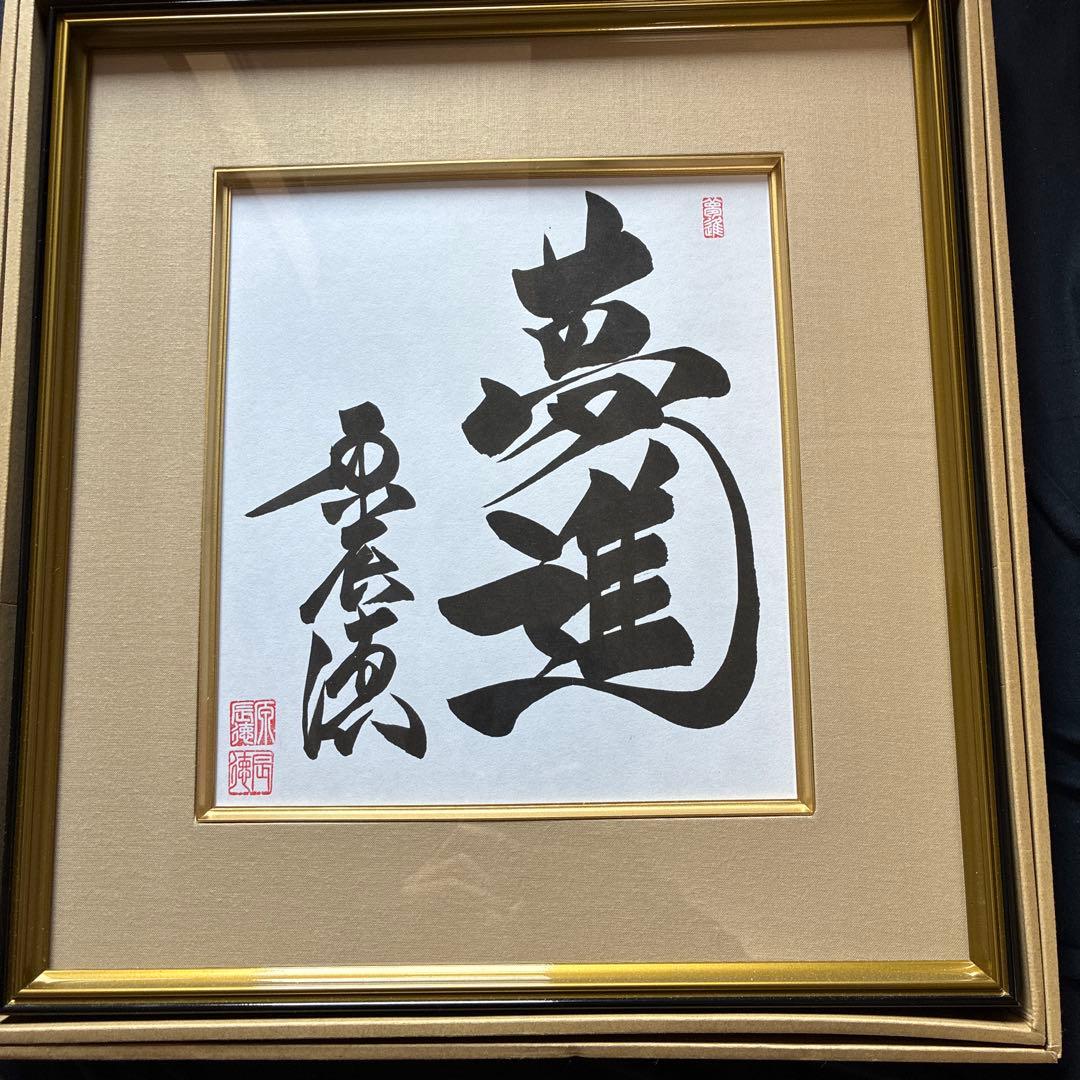 夢進
夢進
原辰徳
原辰徳
辰徳